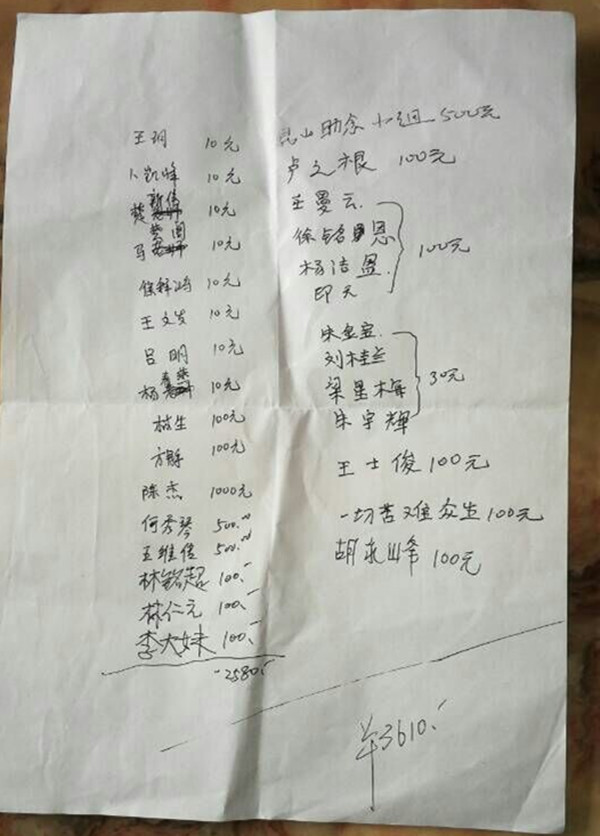 王玥 10元
卜凯峰 10元
楚新伟 10元
马 10元
10元
王文发 10元
吕明 10元
杨春 10元
生 100元
方 100元
陈杰 1000元
何秀琴 500.00
王维 500.00
林铭超 100.-
林仁元 100.-
李大妹 100.-
2580.-
昆山助念小组 500元
卢文根 100元
王曼云.
徐铭恩
杨洁盈.
印天
100元
朱金宝.
刘桂兰
梁星梅
朱宇輝
30元
王士俊 100元
一切苦难众生 100元
胡永峰 100元
¥3610.-